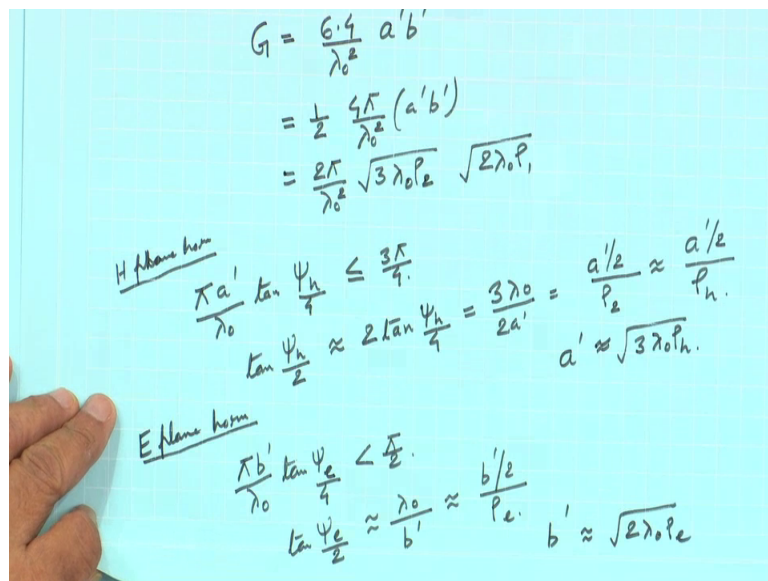 G = 6.4/λ₀² a'b'
= 1/2 4π/λ₀² (a'b')
= 2π/λ₀² √(3λ₀ρ₂) √(2λ₀ρ₁)
H plane horn
πa'/λ₀ tan ψₕ/4 ≤ 3π/4.
tan ψₕ/2 ≈ 2 tan ψₕ/4 = 3λ₀/2a' = a'/2/ρ₂ ≈ a'/2/ρₕ.
a' ≈ √(3λ₀ρₕ).
E plane horn
πb'/λ₀ tan ψₑ/4 < π/2.
tan ψₑ/2 ≈ λ₀/b' ≈ b'/2/ρₑ.
b' ≈ √(2λ₀ρₑ)